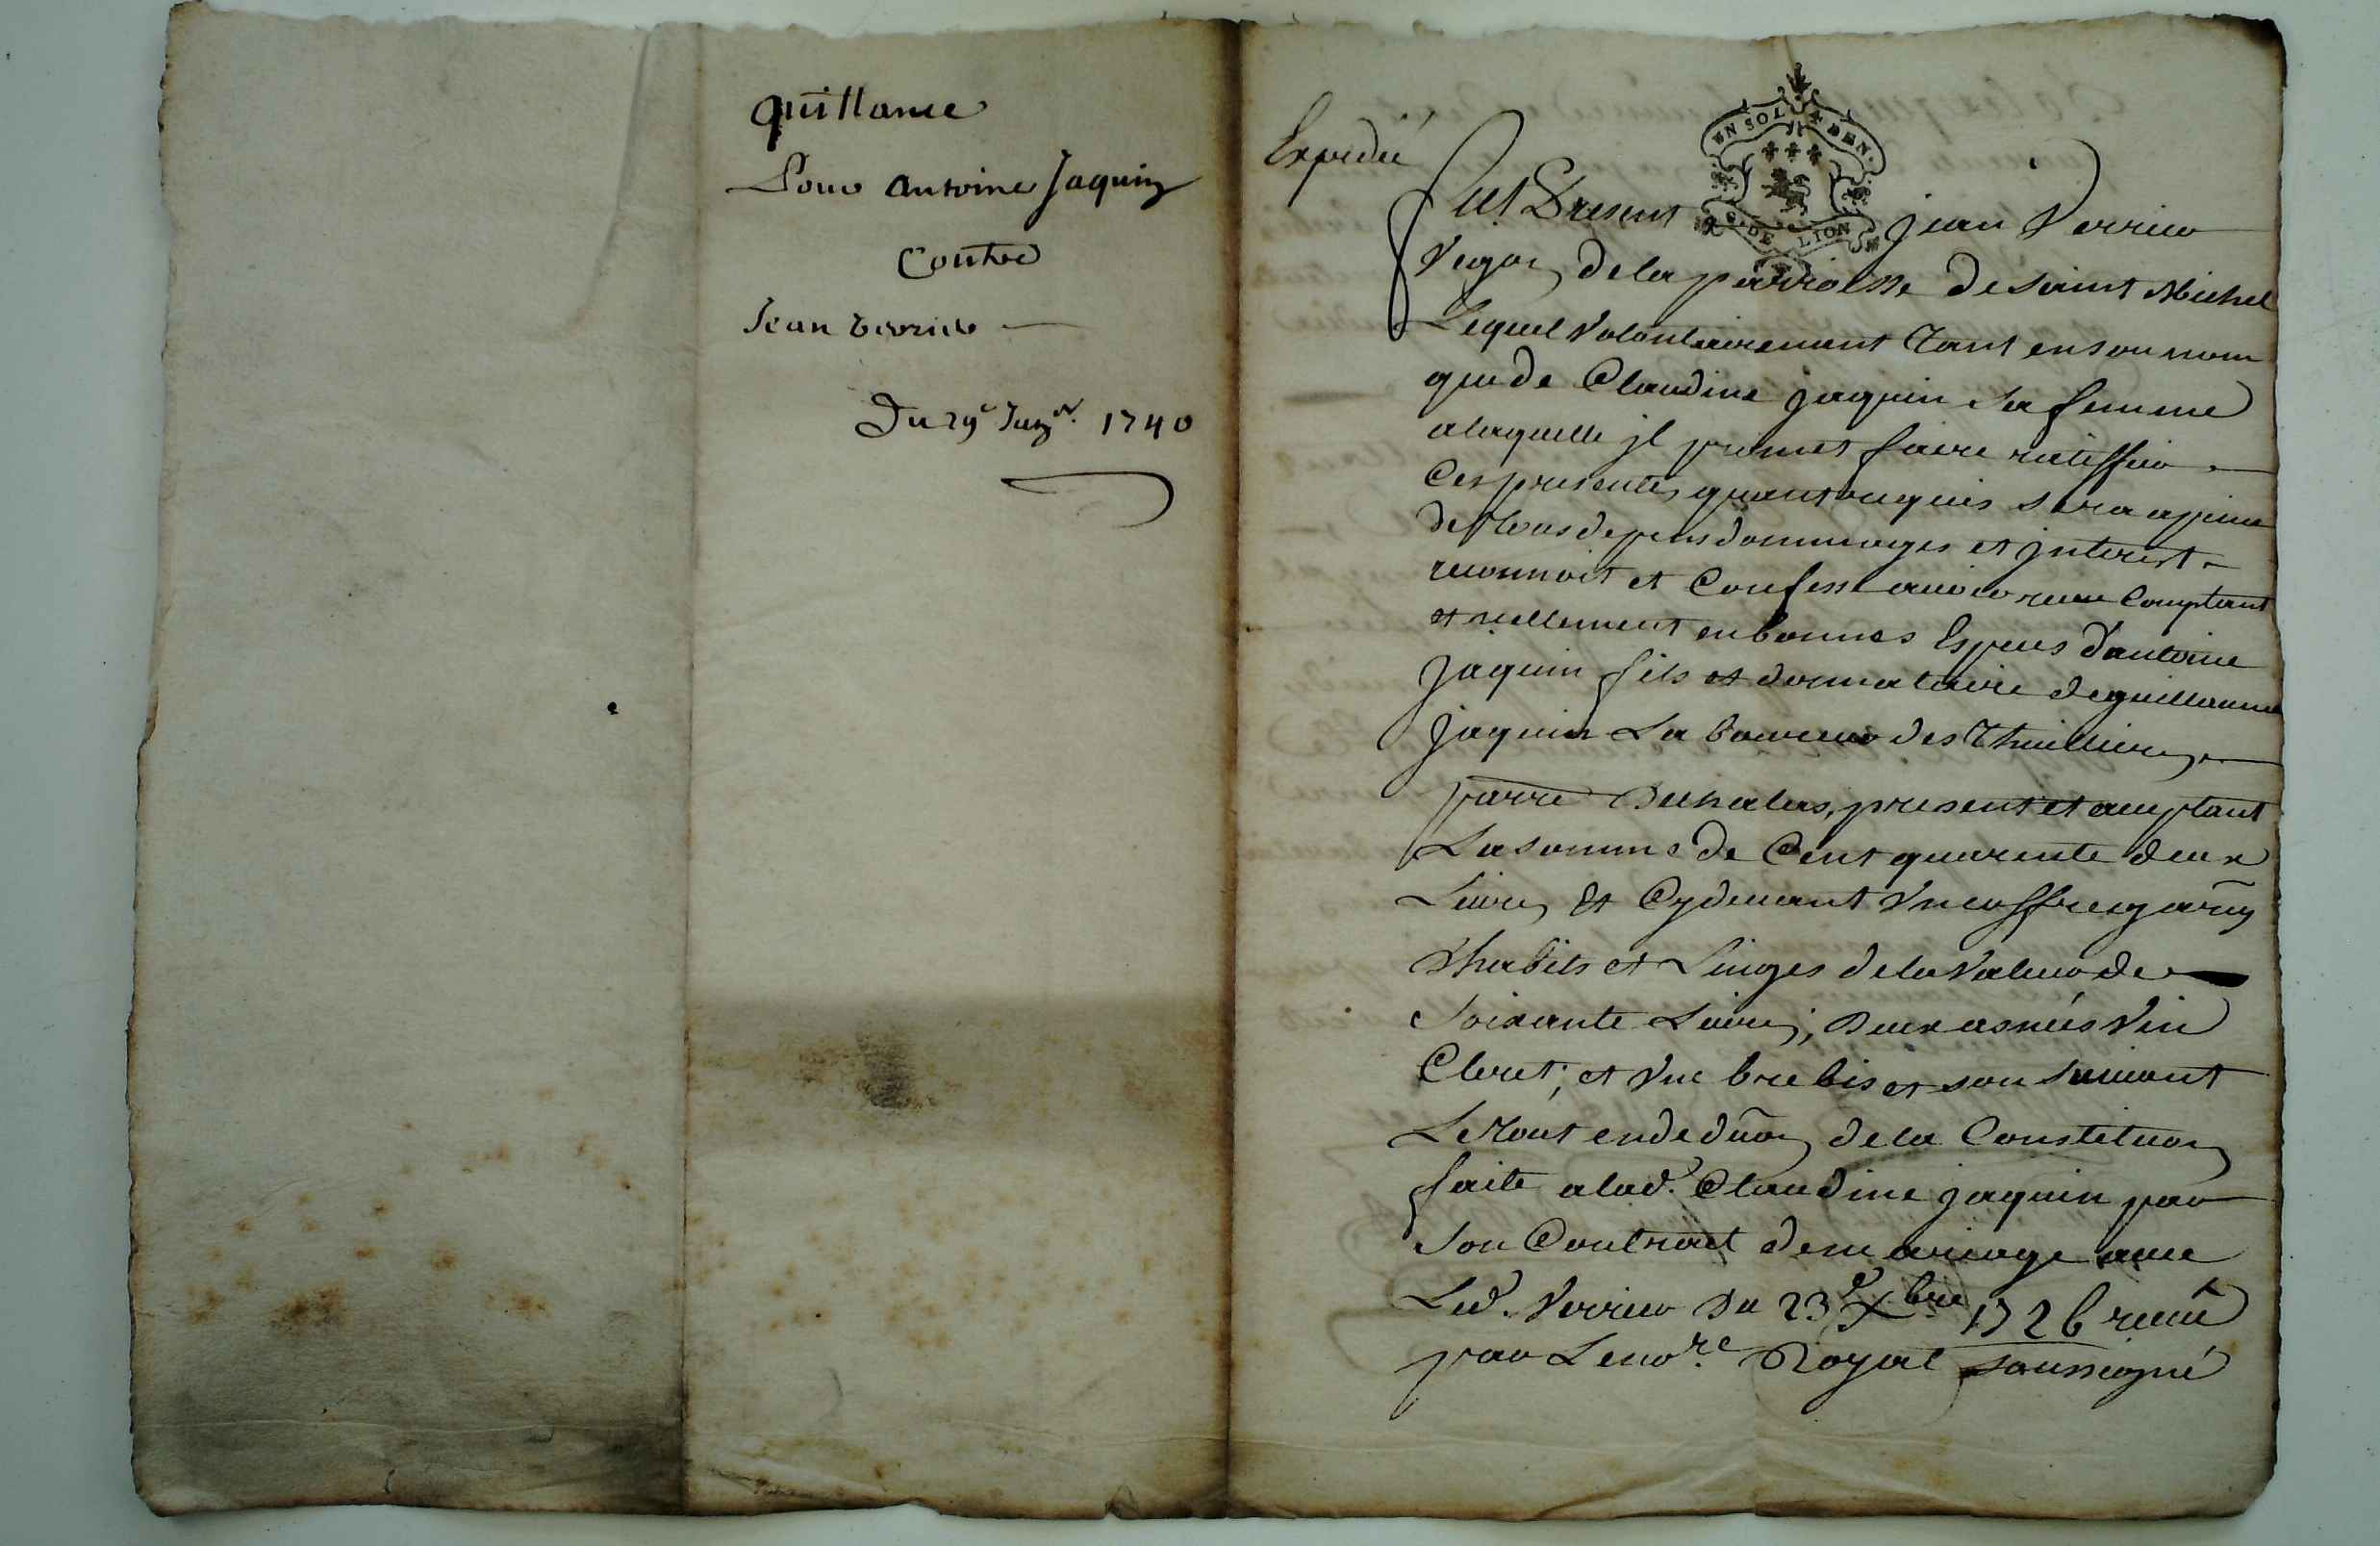 quittance
Pour antoine Jaquin
Contre
Jean verrier
Du 29e Janvr. 1740
Expedié
UN SOL 4 DEN.
G. DE LION
fut Present jean Verrier
Vigon de la parroisse de saint Michel
Lequel Volontairement tant en son nom
que de Claudine jaquin sa femme
a laquelle jl promet faire ratiffier
Ces presentes quant requis sera a peine
de tous depens dommages et jnterest
reconnoit et Confesse avoir receu Comptant
et reellement en bonnes Especes d'antoine
jaquin fils et donnataire de guillaume
jaquin Laboureur des Thuillieres
parre Dechalas, present et acceptant
La somme de Cent quarente deux
Livres Et Cydevant Un coffre garny
d'habits et Linges de la Valeur de
Soixante Livres, Deux asneés Vin
Cleret; et Une brebis et son suivant
Le tout en deduon de la Constituon
faite a lad. Claudine jaquin par
Son Contract de mariage avec
Led. Verrier Du 23e Xbre 1726 receu
par Le nore. Royal soussigné